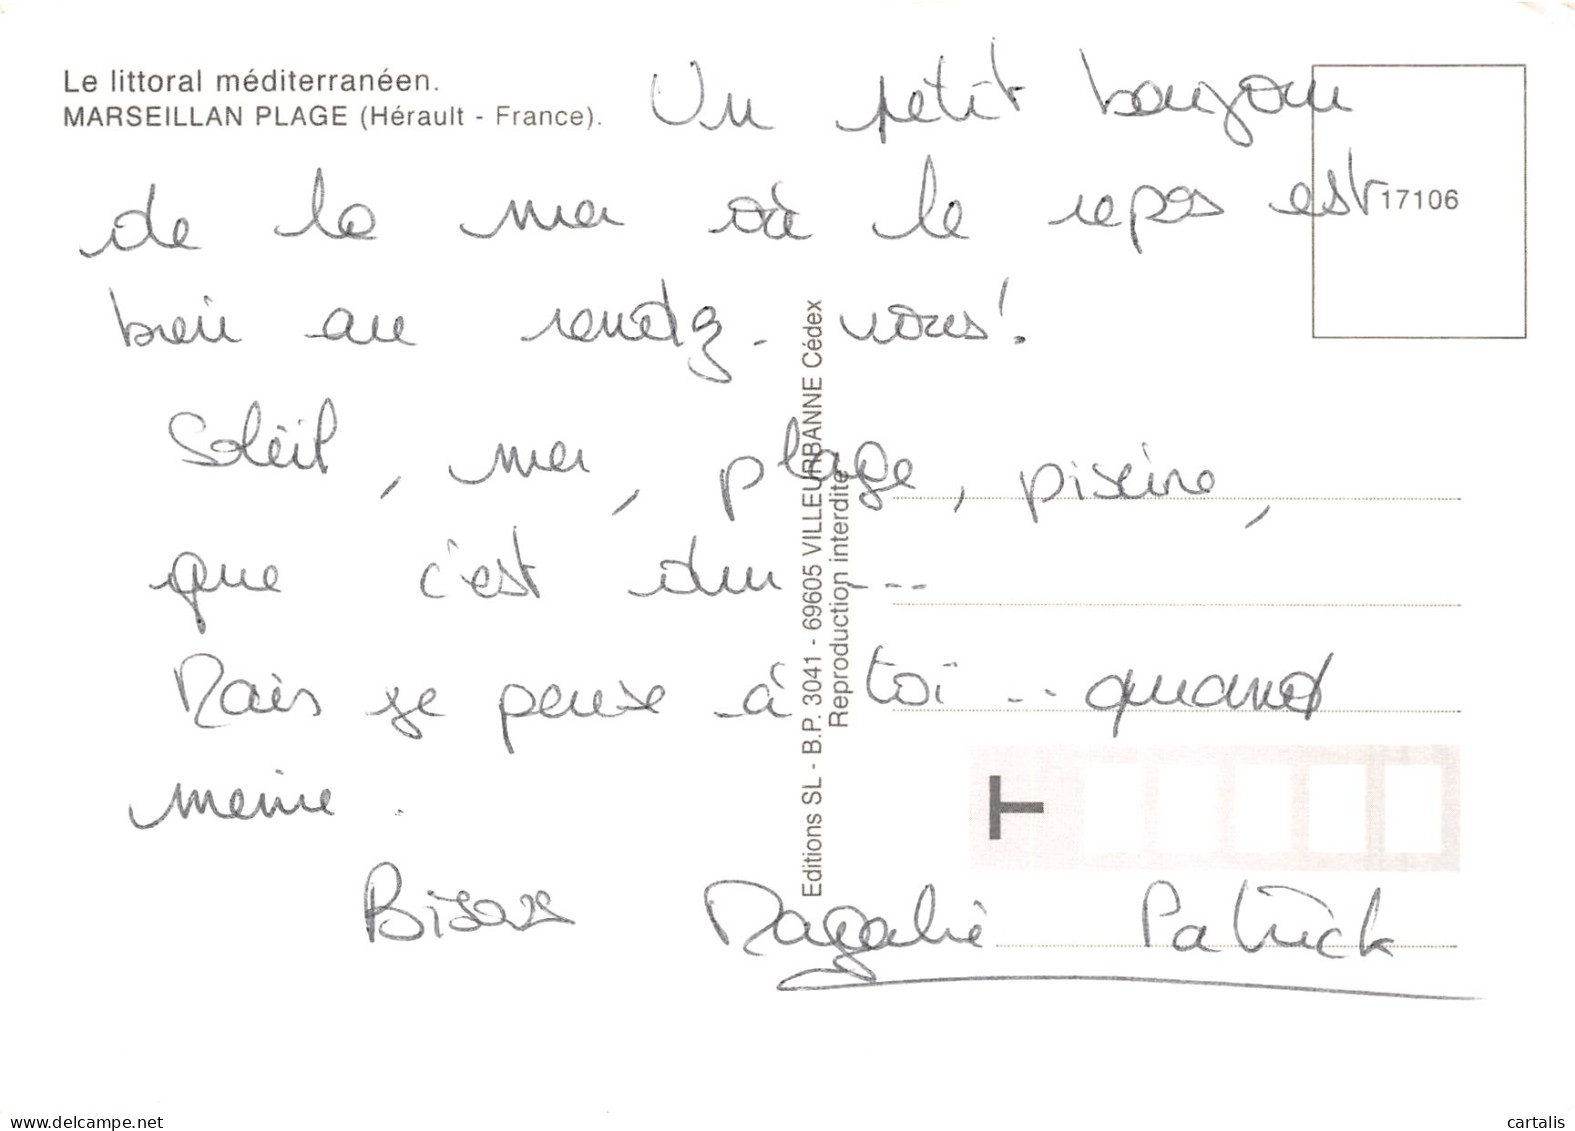 Le littoral méditerranéen.
MARSEILLAN PLAGE (Hérault - France).
Un petit bonjour
de la mer où le repos est
17106
bien au rendez-vous!
Soleil, mer, plage, piscine,
que c'est dur ---
Mais je pense à toi .. quand
même.
Bisous Magalie Patrick
Editions SL - B.P. 3041 - 69605 VILLEURBANNE Cédex
Reproduction interdite
T
www.delcampe.net
cartalis